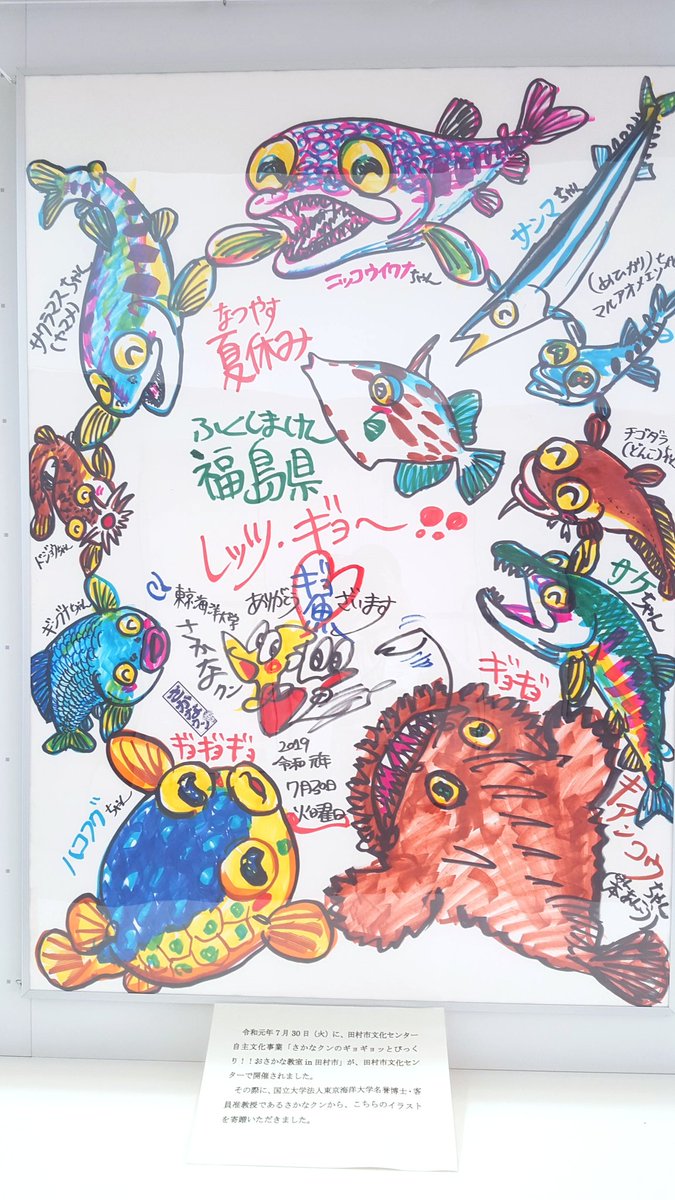 ニッコウイワナちゃん
サンマちゃん
(めひかり)
マルアオメエソちゃん
サクラマスちゃん
(ヤマメ)
なつやす
夏休み
ふくしまけん
福島県
チゴダラ
(どんこ)ちゃん
レッツ・ギョ〜
ドジョウちゃん
サケちゃん
ギンブナちゃん
東京海洋大学
さかなクン
ありがとうギョざいます
ギョギョ
ギョギョギョ
2019
令和元年
7月30日
火曜日
ハコフグちゃん
キアンコウちゃん
令和元年7月30日(火)に、田村市文化センター
自主文化事業「さかなクンのギョギョッとびっく
り!!おさかな教室in田村市」が、田村市文化セン
ターで開催されました。
その際に、国立大学法人東京海洋大学名誉博士・客
員准教授であるさかなクンから、こちらのイラスト
を寄贈いただきました。